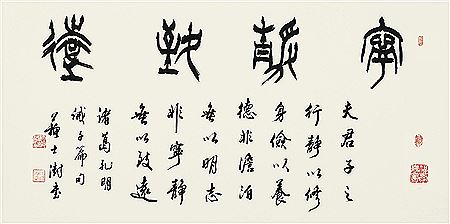 寧靜致遠
夫君子之
行靜以修
身儉以養
德非澹泊
無以明志
非寧靜
無以致遠
諸葛孔明
誡子篇句
士澍書